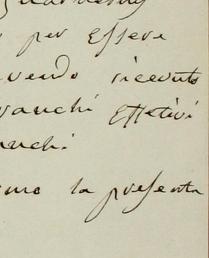 per Essere
vendo ricevuto
vanchi Effetivi
anchi
la presenta